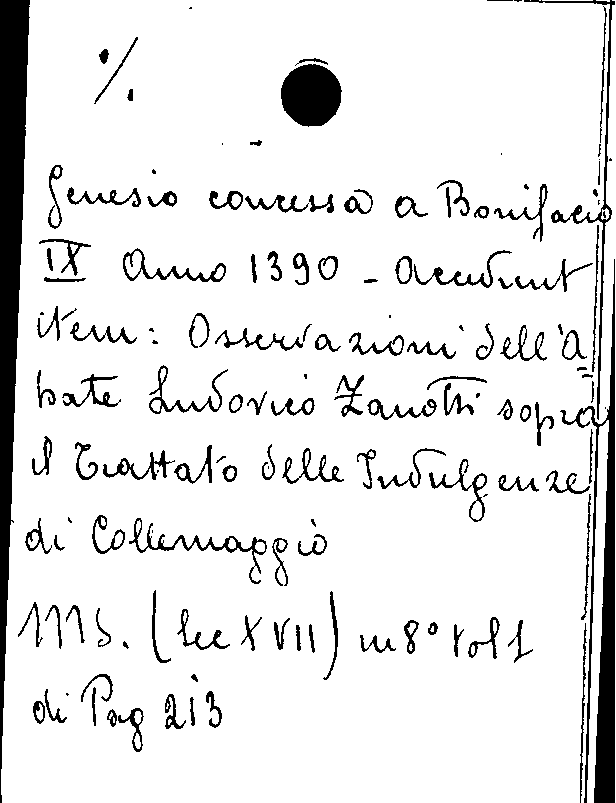 %.
Genesio concessa a Bonifacio
IX Anno 1390 - Accedunt
item: Osservazioni dell'A=
bate Ludovico Zanotti sopra
il Trattato delle Indulgenze
di Collemaggio
MS. (Sec XVII) in 8° vol 1
di Pag 213